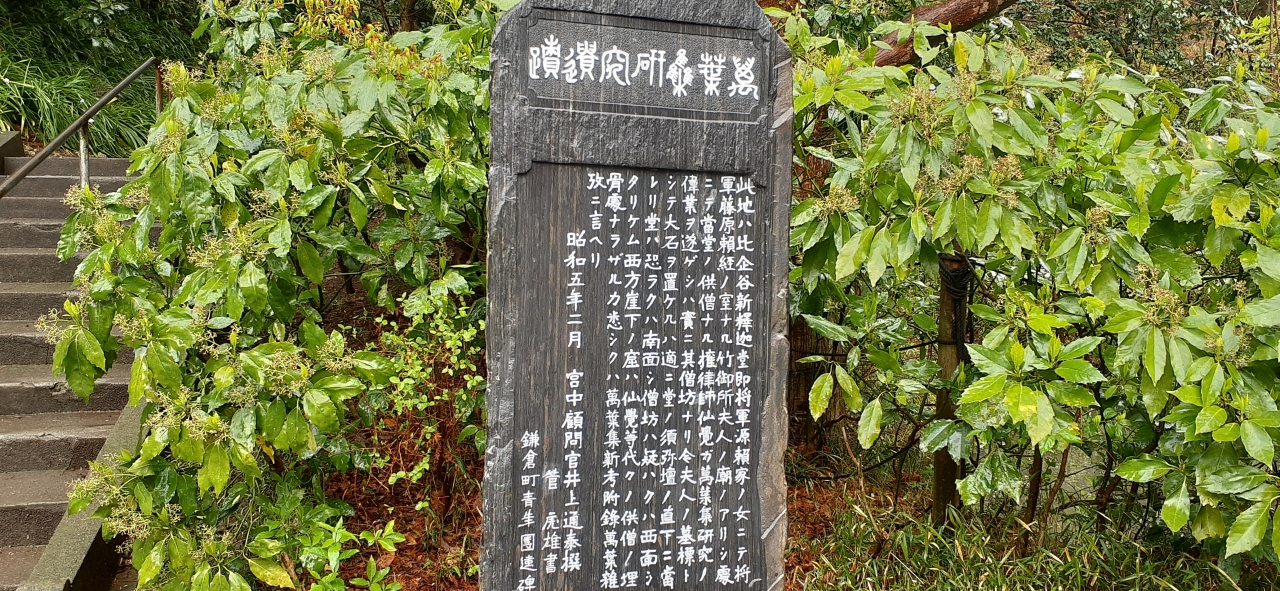 萬葉集研究遺蹟
此地ハ比企谷新釋迦堂即将軍源頼家ノ女ニテ将
軍藤原頼経ノ室ナル竹御所夫人ノ廟ノアリシ處
ニテ當堂ノ供僧ナル權律師仙覺ガ萬葉集研究ノ
偉業ヲ遂ゲシハ實ニ其僧坊ナリ今夫人ノ墓標ト
シテ大石ヲ置ケルハ適ニ堂ノ須弥壇ノ直下ニ當
レリ堂ハ恐ラクハ南面シ僧坊ハ疑ハクハ西面シ
タリケム西方崖下ノ窟ハ仙覺等代々ノ供僧ノ埋
骨處ナラザルカ悉シクハ萬葉集新考附錄萬葉雜
攷ニ言ヘリ
昭和五年二月 宮中顧問官井上通泰撰
菅虎雄書
鎌倉町青年團建碑